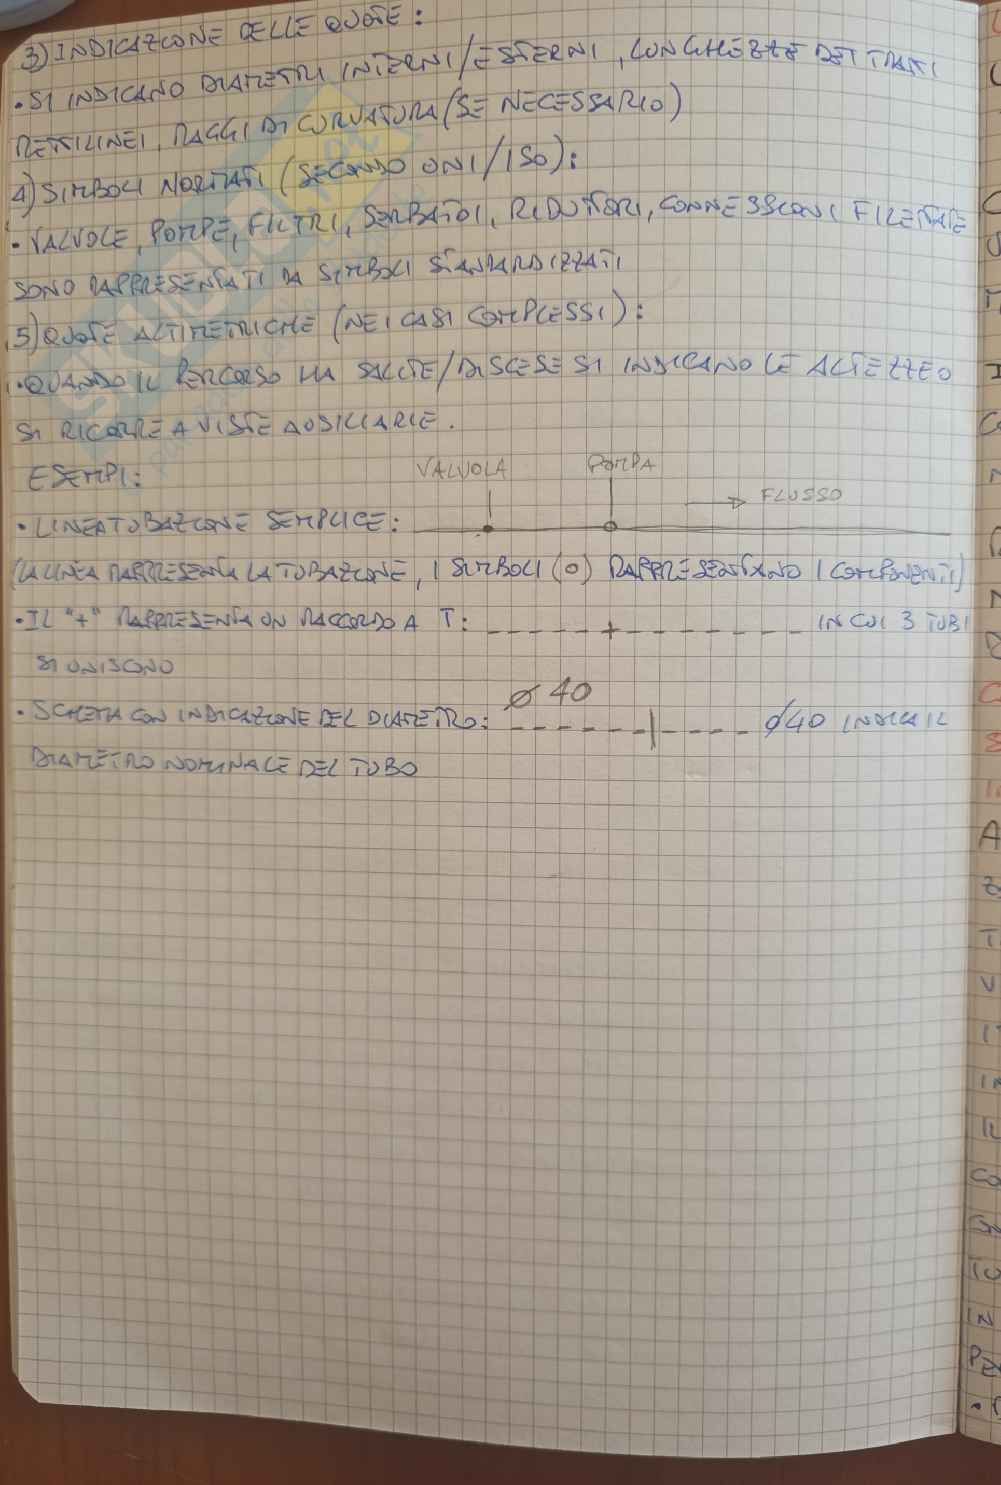 3) INDICAZIONE DELLE QUOTE:
• SI INDICANO DIAMETRI INTERNI/ESTERNI, LUNGHEZZE DEI TRATTI
RETTILINEI, RAGGI DI CURVATURA (SE NECESSARIO)
4) SIMBOLI NORMATI (SECONDO UNI/ISO):
• VALVOLE, POMPE, FILTRI, SERBATOI, RIDUTTORI, CONNESSIONI FILETTATE
SONO RAPPRESENTATI DA SIMBOLI STANDARDIZZATI
5) QUOTE ALTIMETRICHE (NEI CASI COMPLESSI):
• QUANDO IL PERCORSO HA SALITE/DISCESE SI INDICANO LE ALTEZZE O
SI RICORRE A VISTE AUSILIARIE.
ESEMPI:
VALVOLA POMPA
FLUSSO
• LINEA TUBAZIONE SEMPLICE:
(LA LINEA RAPPRESENTA LA TUBAZIONE, I SIMBOLI (O) RAPPRESENTANO I COMPONENTI)
• IL "+" RAPPRESENTA UN RACCORDO A T: IN CUI 3 TUBI
SI UNISCONO
Ø 40
• SCHEMA CON INDICAZIONE DEL DIAMETRO: Ø40 INDICA IL
DIAMETRO NOMINALE DEL TUBO